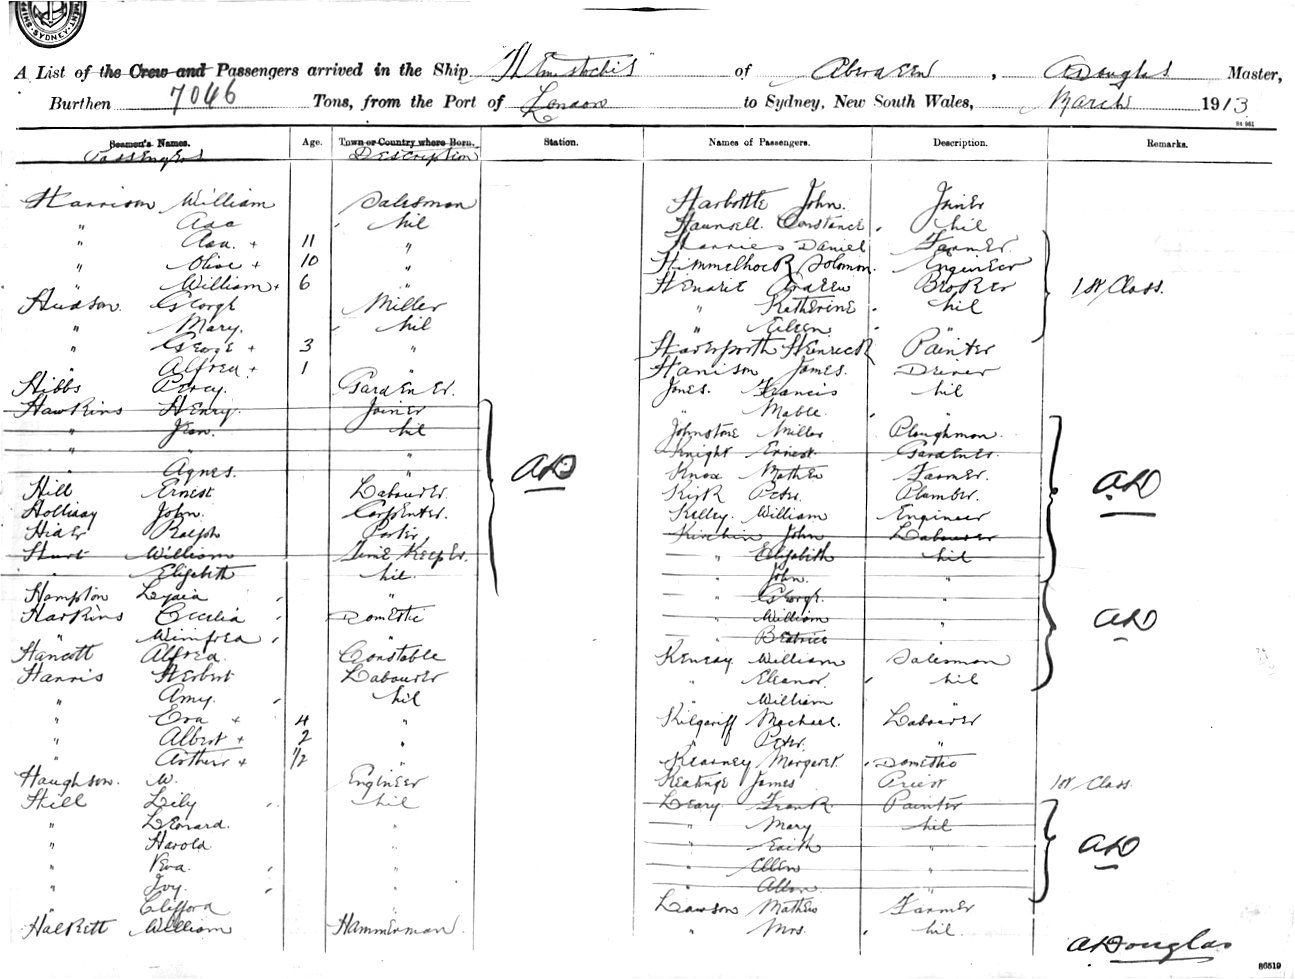 SYDNEY
A List of the Crew and Passengers arrived in the Ship Themistocles of Aberdeen, A Douglas Master,
Burthen 7046 Tons, from the Port of London to Sydney, New South Wales, March 1913
84 961
Seamen's Names. Age. Town or Country where Born. Station. Names of Passengers. Description. Remarks.
Passengers Description
Harrison William Salesman Harbottle John. Joiner
" Ada Nil Haunsell Constance Nil
" Ada + 11 " Harries Daniel Farmer
" Olive + 10 " Himmelhock Solomon. Engineer
" William + 6 " Hendrie Andrew Broker 1st Class.
Hudson George Miller " Katherine Nil
" Mary. Nil " Eileen "
" George + 3 " Heinrich Painter
" Alfred + 1 " Harrison James. Driver
Hibbs Percy. Gardener. Jones. Francis Nil
Hawkins Henry. Joiner " Mable "
" Jean. Nil Johnstone Miller Ploughman
" " Knight Ernest. Gardener.
" Agnes. " AD Knox Mathew Farmer. AD
Hill Ernest Labourer. Kirk Peter. Plumber.
Holliday John. Carpenter. Kelley. William Engineer
Hider Ralph Porter, Kirchin John Labourer
Hurt William Time Keeper. " Elizabeth Nil
" Elizabeth Nil. " John. "
Hampton Lydia " " George. "
Harkins Cecilia Domestic " William " AD
" Winifred " Beatrice "
Hancott Alfred. Constable Kenday William Salesman
Harris Herbert Labourer " Eleanor. Nil
" Amy. Nil " William "
" Eva + 4 " Kilgariff Michael. Labourer
" Albert + 2 " " Peter. "
" Arthur + 1/2 " Kearney Margaret. Domestic
Haughson. W. Engineer Keatinge James Priest 1st Class.
Hill Lily Nil Leary Frank. Painter
" Leonard. " " Mary Nil
" Harold " " Edith " AD
" Vera " " Ellen "
" Ivy. " " Allan "
" Clifford " Lawson Mathew Farmer
Halkett William Hammerman. " Mrs. Nil.
A Douglas
86519